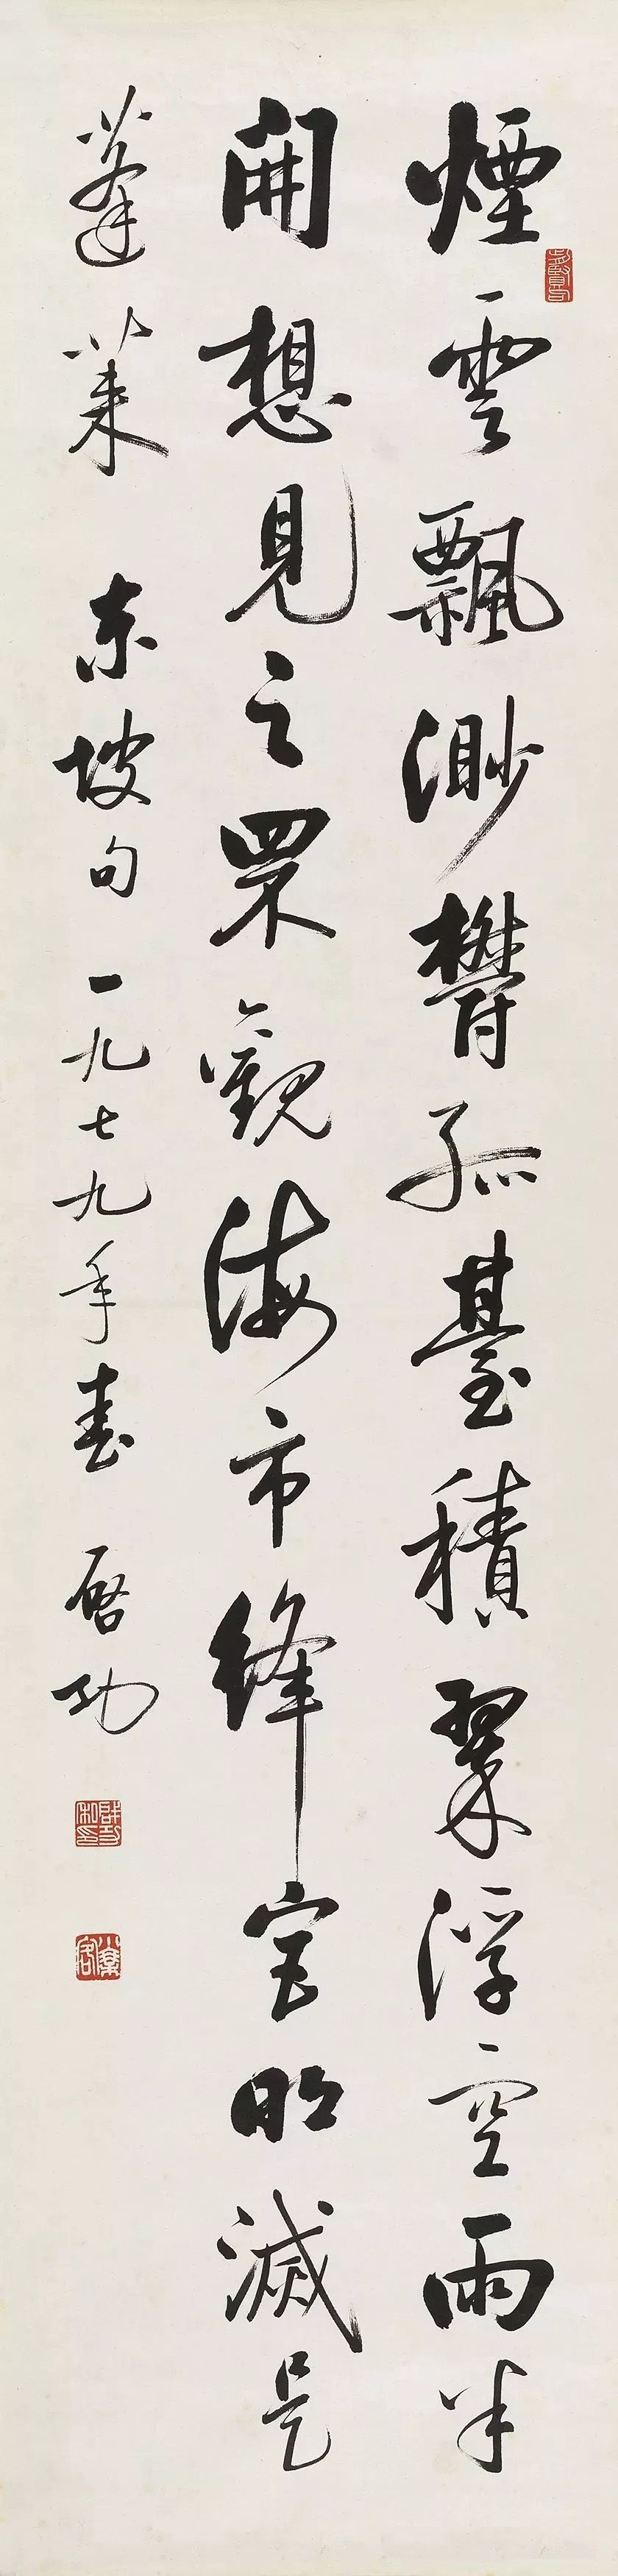 煙雲飄渺鬱孤臺積翠浮空雨半
開想見之罘觀海市絳宮明滅是
蓬萊 東坡句 一九七九年春 啓功